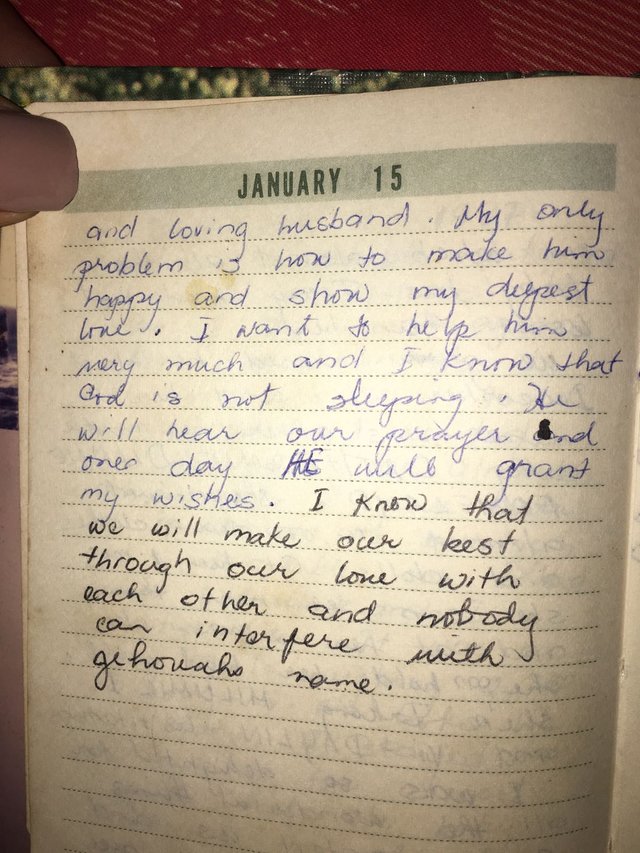 JANUARY 15
and loving husband. My only
problem is how to make him
happy and show my deepest
love. I want to help him
very much and I know that
God is not sleeping. He
will hear our prayer and
one day HE will grant
my wishes. I know that
we will make our best
through our love with
each other and nobody
can interfere with
gehovahs name.